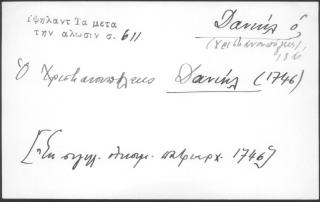 Ὑψηλαντ Τα μετα
την αλωσιν σ. 611
Δανιήλ ὁ
(Χριστιανουπόλεως)
Ὁ Χριστιανουπόλεως Δανιήλ (1746)
[Ἐκ συγιλ. πατριαρχ. 1746]